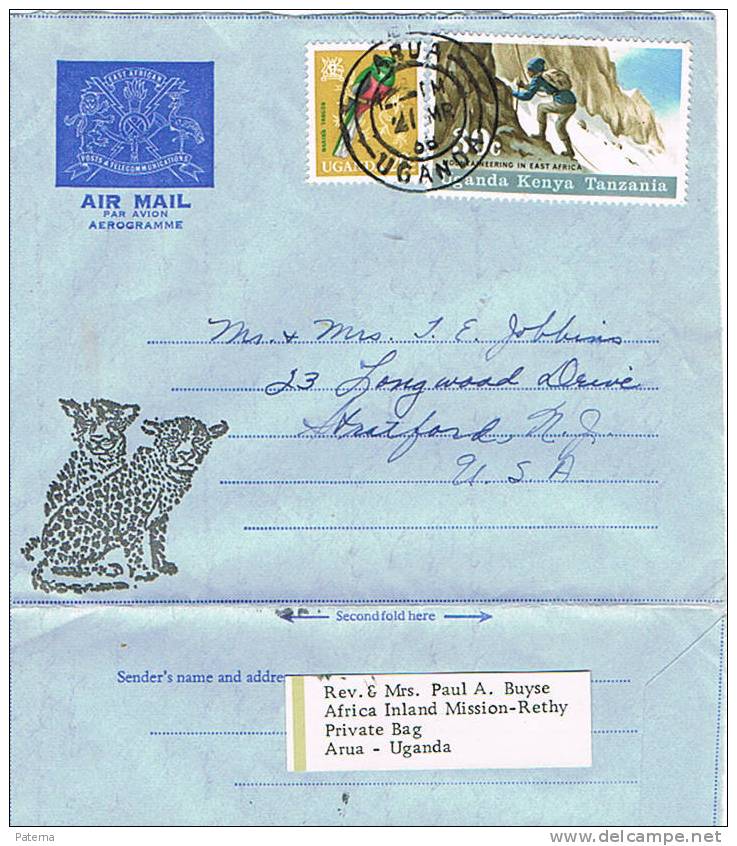 EAST AFRICAN
POSTS & TELECOMMUNICATIONS
AIR MAIL
PAR AVION
AEROGRAMME
ARUA
21 MR
UGANDA
NARINA TROGON
UGANDA
30c
MOUNTAINEERING IN EAST AFRICA
Uganda Kenya Tanzania
Mr. & Mrs. T. E. Jobbins
23 Longwood Drive
Stratford, N.J.
U.S.A.
Second fold here
Sender's name and addre
Rev. & Mrs. Paul A. Buyse
Africa Inland Mission-Rethy
Private Bag
Arua - Uganda
Paterna
www.delcampe.net